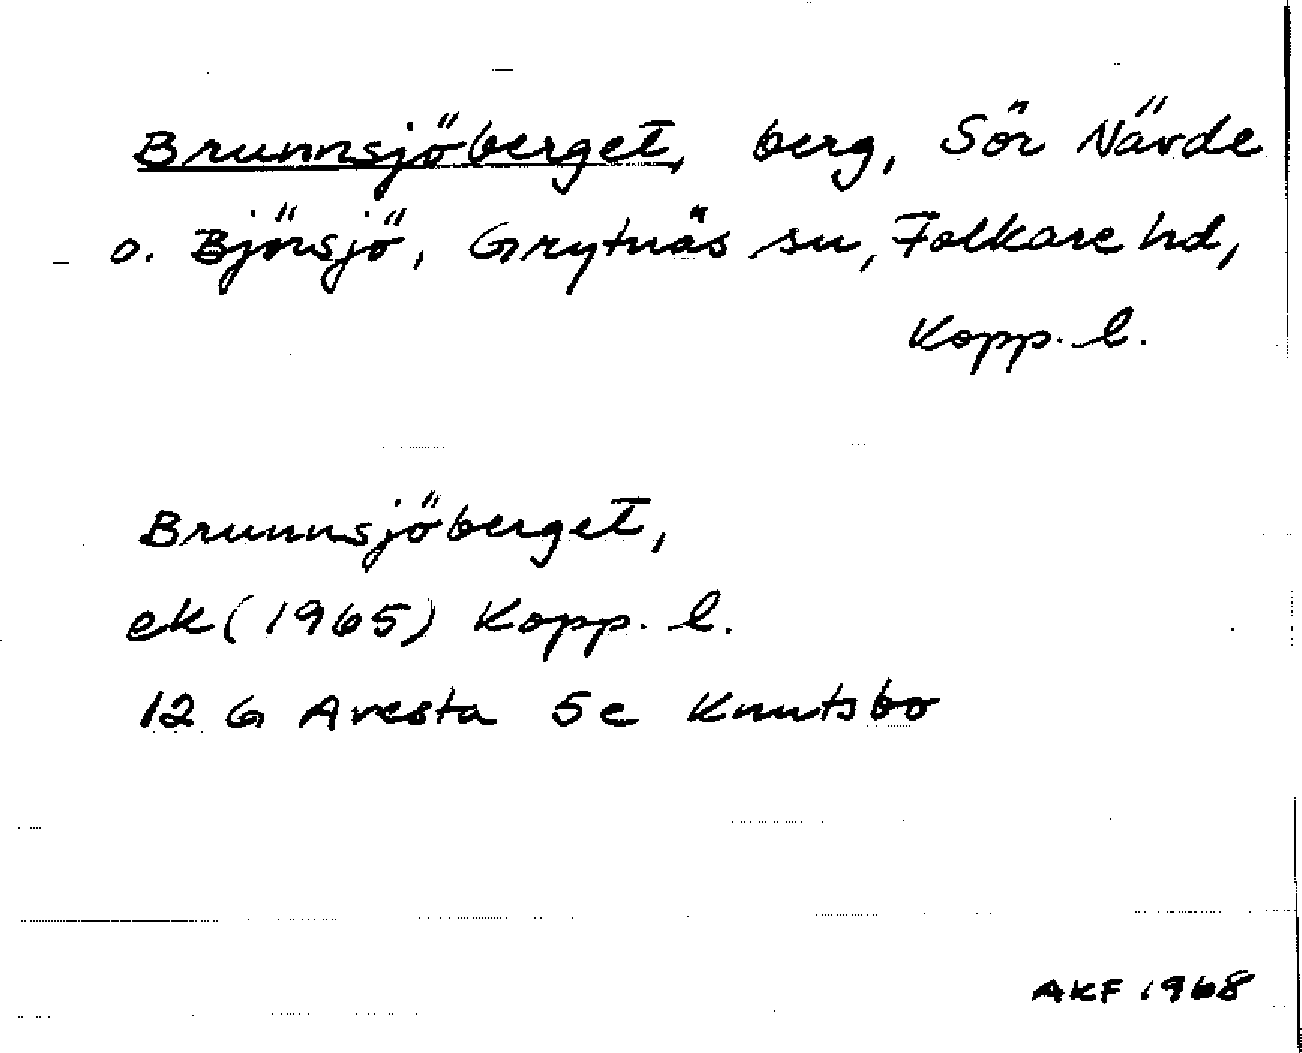 Brunnsjöberget, berg, Sör Nävde
o. Björsjö, Grytnäs sn, Folkare hd,
Kopp. l.
Brunnsjöberget,
ek (1965) Kopp. l.
12 G Avesta 5c Knutsbo
AKF 1968